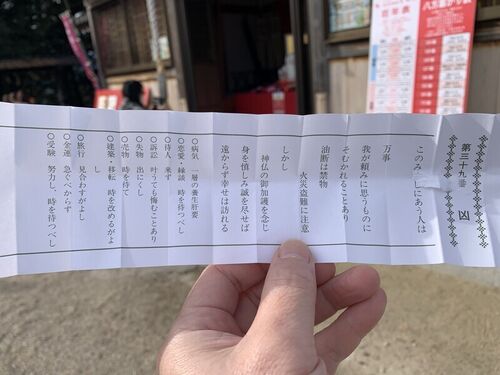 第三十九番 凶
このみくじにあう人は
万事
我が頼みに思うものに
そむかれることあり
油断は禁物
火災盗難に注意
しかし
神仏の御加護を念じ
身を慎しみ誠を尽せば
遠からず幸せは訪れる
〇病気 一層の養生肝要
〇恋愛・縁談 時を待つべし
〇待人 来ず
〇訴訟 叶ても悔むことあり
〇失物 出にくし
〇売物 時を待て
〇建築・移転 時を改めるがよ
し
〇旅行 見合わすがよし
〇金運 急ぐべからず
〇受験 努力し、時を待つべし